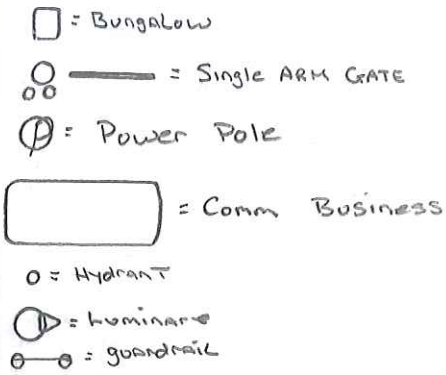 = Bungalow
= Single ARM GATE
= Power Pole
= Comm Business
= Hydrant
= Luminare
= guardrail